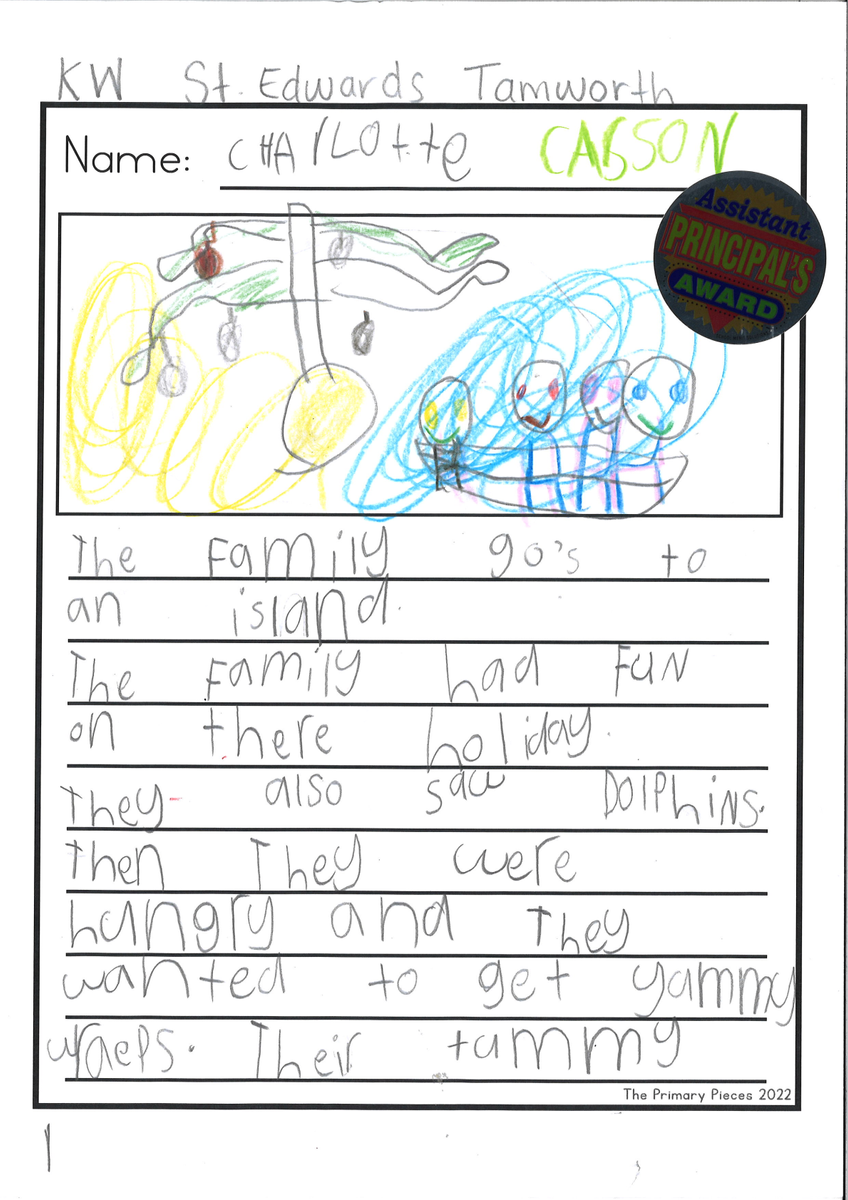 KW St. Edwards Tamworth
Name: CHArLOtte CARSON
Assistant
PRINCIPAL'S
AWARD
The Family go's to
an island.
The Family had FUN
on there holiday.
They also saw DOlPhiNS.
then They were
hungry and They
wanted to get yammy
wraeps. Their tammy
The Primary Pieces 2022
1